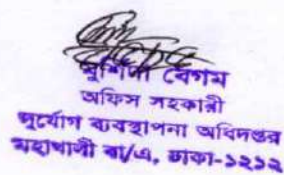 খুর্শিদা বেগম
অফিস সহকারী
দুর্যোগ ব্যবস্থাপনা অধিদপ্তর
মহাখালী বা/এ, ঢাকা-১২১২